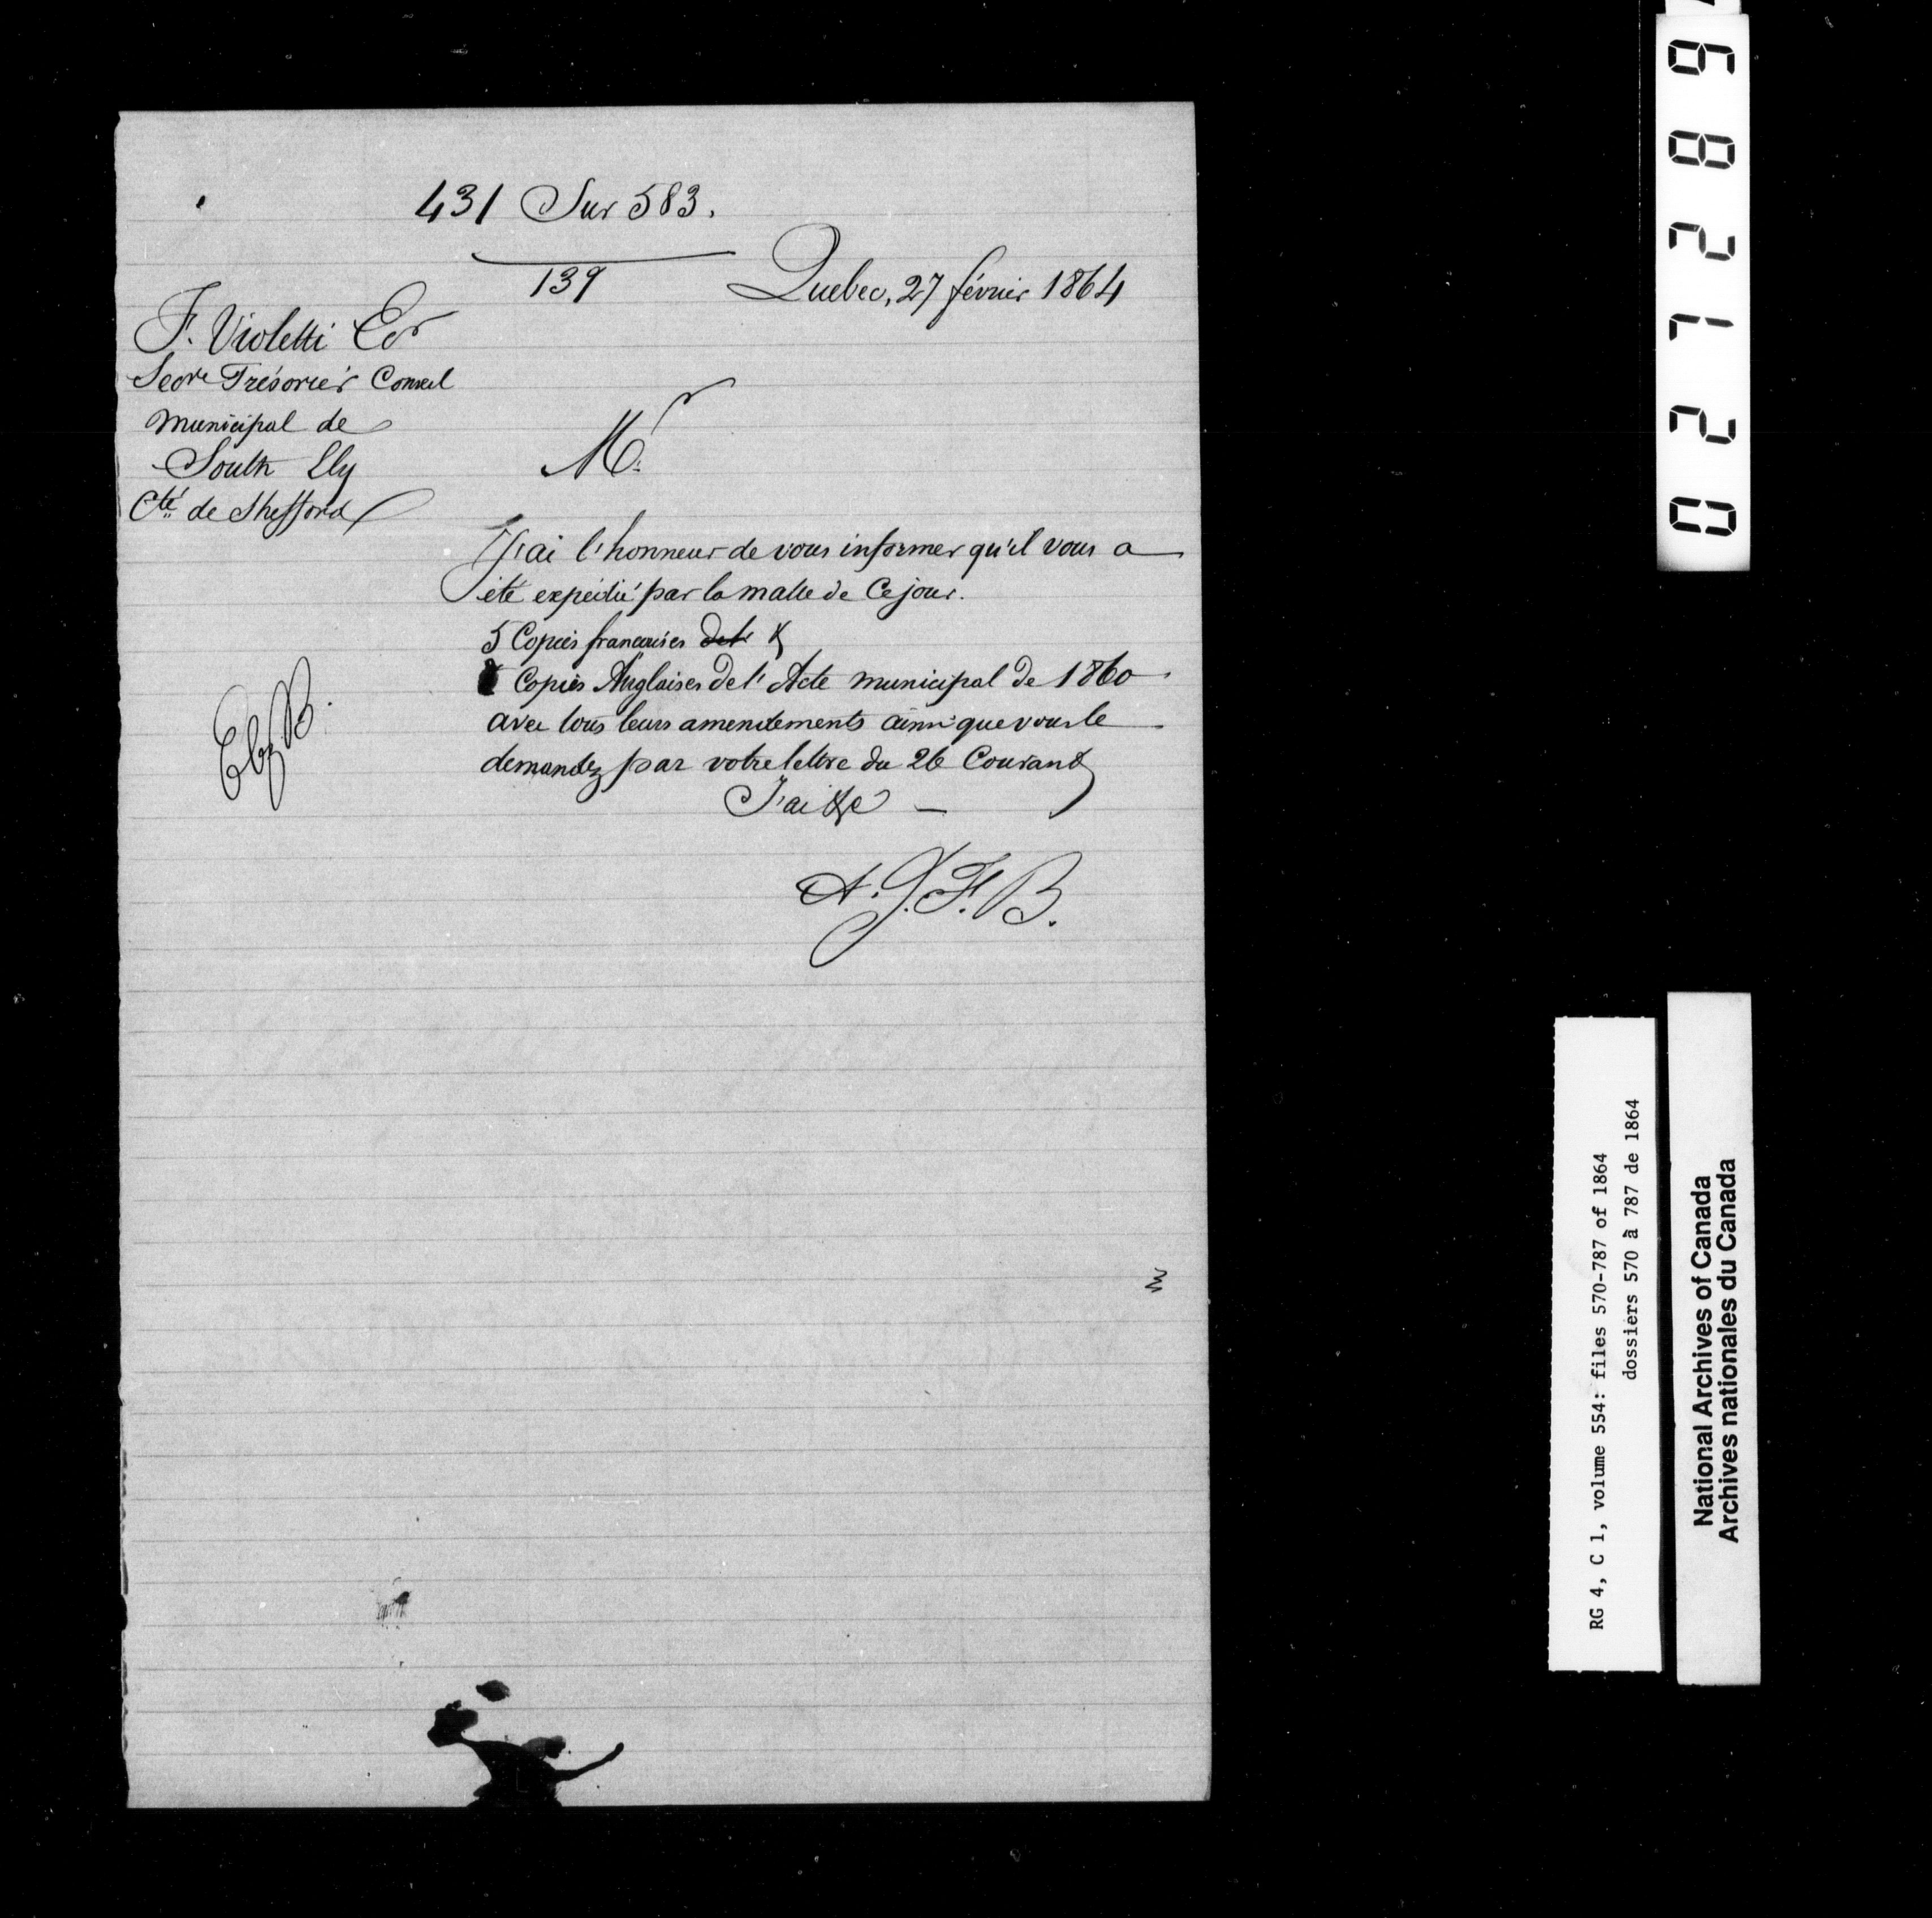 431 Sur 583.
139
Quebec, 27 février 1864
F. Violetti Ecr
Secre Trésorier Conseil
Municipal de
South Ely
Cté de Shefford
Mr.
J'ai l'honneur de vous informer qu'il vous a
été expédié par la malle de Ce jour.
5 Copies francaises de l' &
Copies Anglaises de l' Acte municipal de 1860
avec tous leurs amendements ainsi que vous le
demandez par votre lettre du 26 Courant
J'ai &c —
A. J. F. B.
RG 4, C 1, volume 554: files 570-787 of 1864
dossiers 570 à 787 de 1864
National Archives of Canada
Archives nationales du Canada
021289